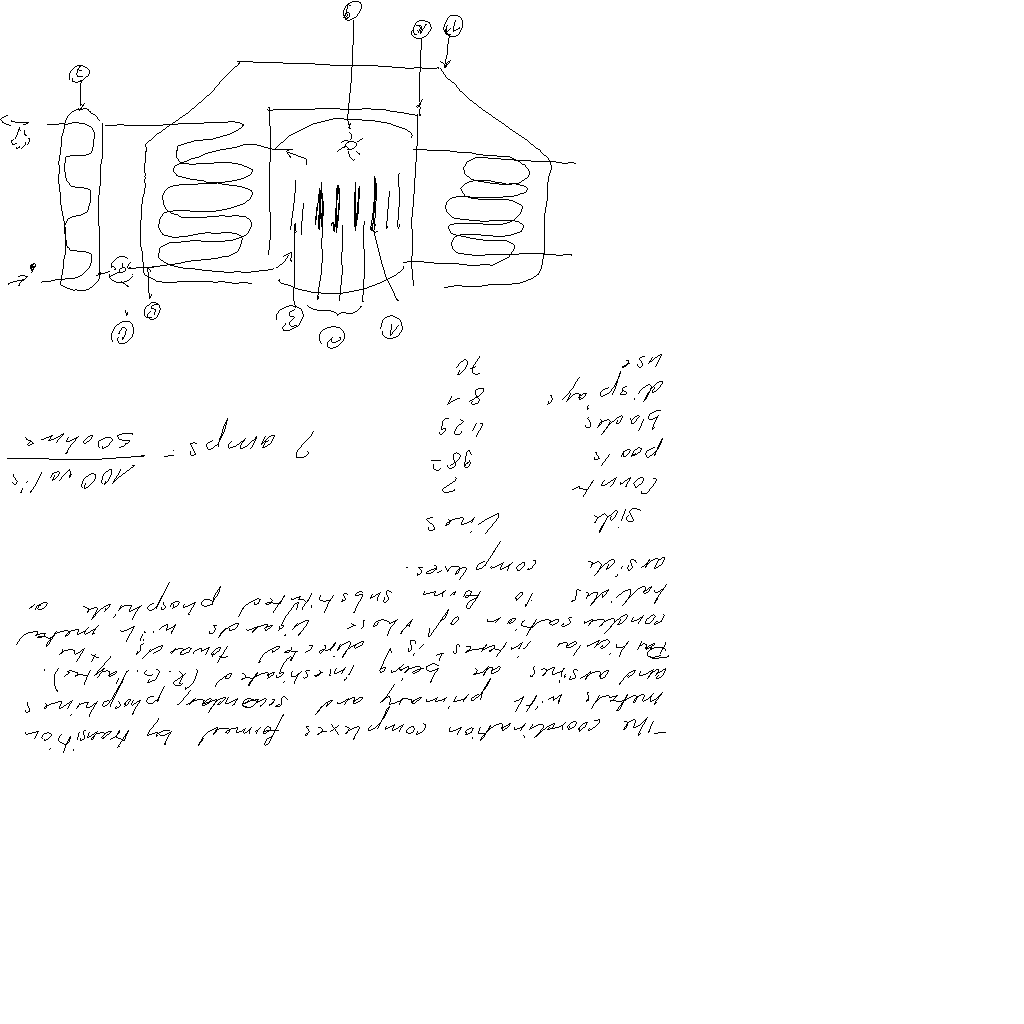 The coordination complexes formed by transition
metals with primary and secondary phosphines
and arsines are being investigated (R.G. Hayter).
Particular interest is directed towards the
condensation of these ligands with metal
halides to form substituted phosphide or
arside complexes.
side lines
2
pools 982
blades 429
displays 81
use 70
2 amps = 100 volts
50 ohms
1
2
3
5